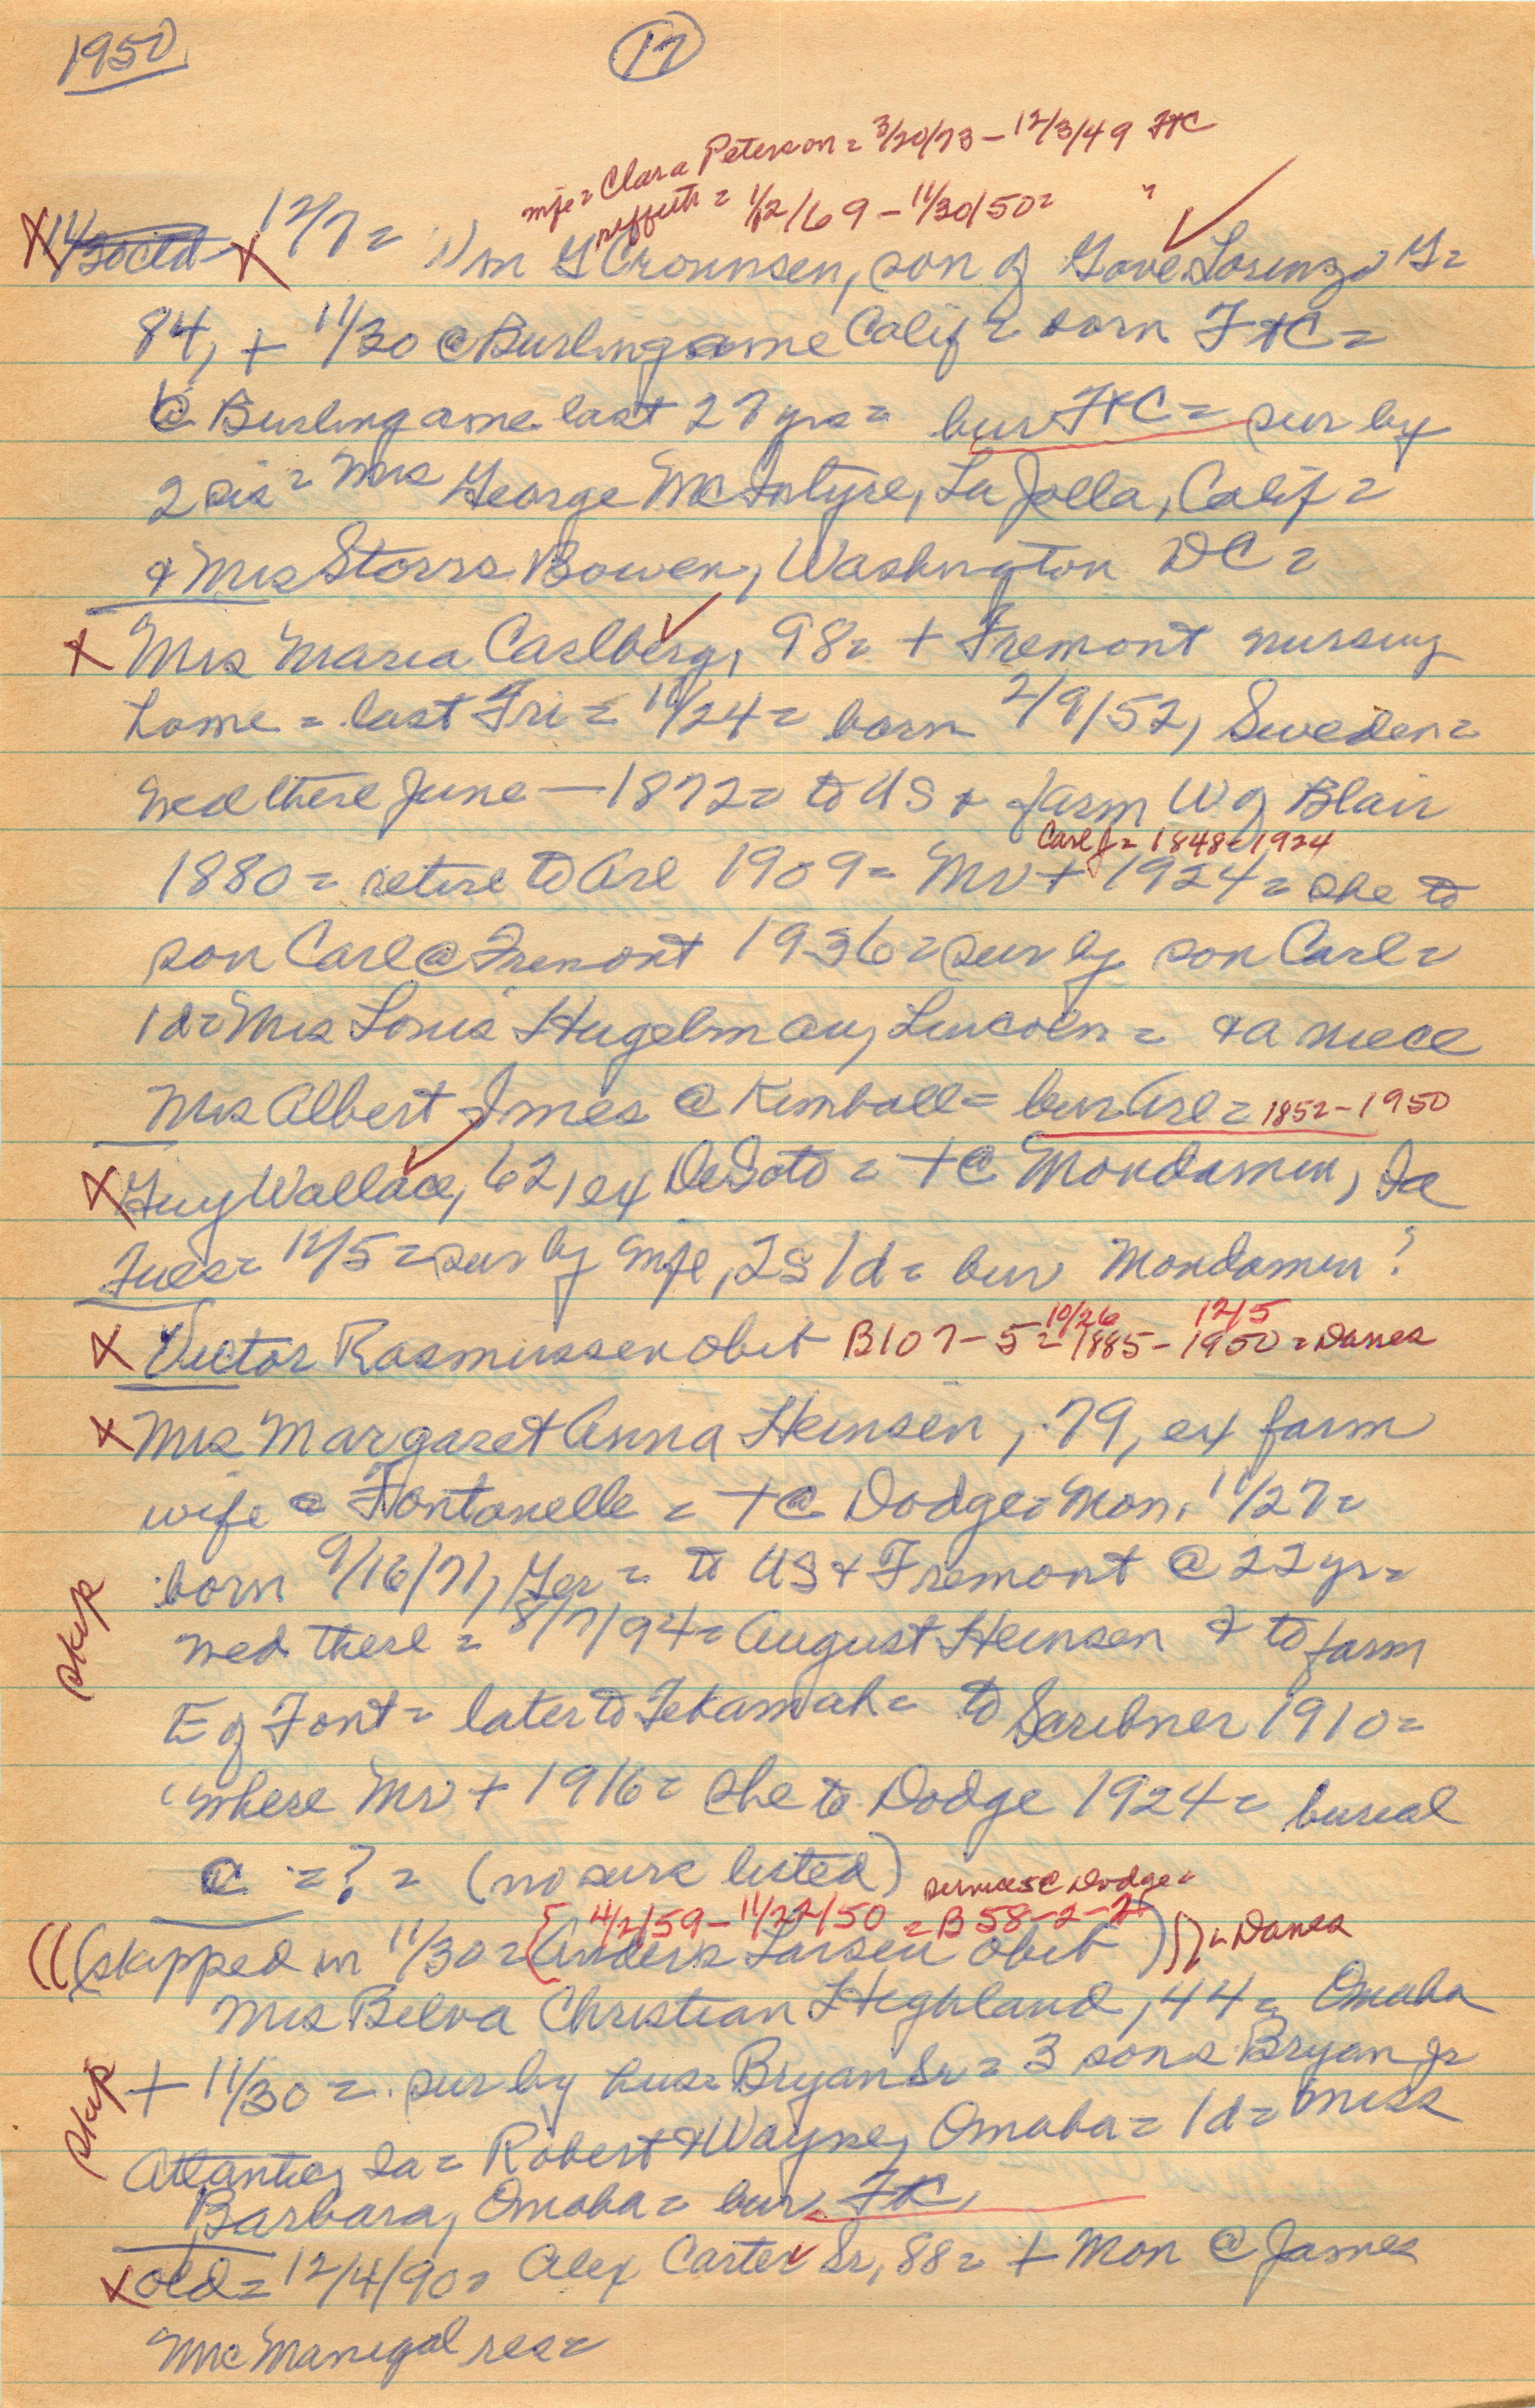 1950
17
wife = Clara Peterson = 3/20/73 - 12/3/49 FtC
= 1/2/69 - 11/30/50 = "
11/30 ctd 12/7 = Wm G Crounsen, son of Gove Lorenzo G =
84, + 11/30 @ Burlingame Calif = born FtC =
@ Burlingame last 27 yrs = bur FtC = sur by
2 sis = Mrs George McIntyre, La Jolla, Calif =
& Mrs Storrs Bowen, Washington DC =
X Mrs Maria Carlberg, 98 = + Fremont nursing
home = last Fri = 11/24 = born 2/9/52, Sweden =
wed there June — 1872 = to US & farm W of Blair
Carl J = 1848-1924
1880 = retire to Arl 1909 = Mr + 1924 = she to
son Carl @ Fremont 1936 = sur by son Carl =
1d = Mrs Louis Hugelman, Lincoln = & a niece
Mrs Albert Imes @ Kimball = bur Arl = 1852-1950
X Guy Wallace, 62, ex DeSoto = + @ Mondamin, Ia
Tues = 12/5 = sur by wife, 2s 1d = bur Mondamin?
10/26 12/5
X Victor Rasmussen obit B107-5 = 1885-1950 = Danes
X Mrs Margaret Anna Heinsen, 79, ex farm
wife @ Fontanelle = + @ Dodge = Mon, 11/27 =
born 9/16/71, Ger = to US & Fremont @ 22 yr =
skip
wed there = 8/7/94 = August Heinsen & to farm
E of Font = later to Tekamah = to Scribner 1910 =
where Mr + 1916 = she to Dodge 1924 = burial
@ = ? = (no surs listed) services @ Dodge =
4/2/59 - 11/22/50 = B58-2-2
((skipped in 11/30 = (Anders Larsen obit)) = Danes
Mrs Belva Christian Highland, 44 = Omaha
skip
+ 11/30 = sur by hus = Bryan Sr = 3 sons Bryan Jr
Atlantic, Ia = Robert & Wayne, Omaha = 1d = Miss
Barbara, Omaha = bur FtC
X old = 12/4/90 = Alex Carter Sr, 88 = + Mon @ James
McManigal res =